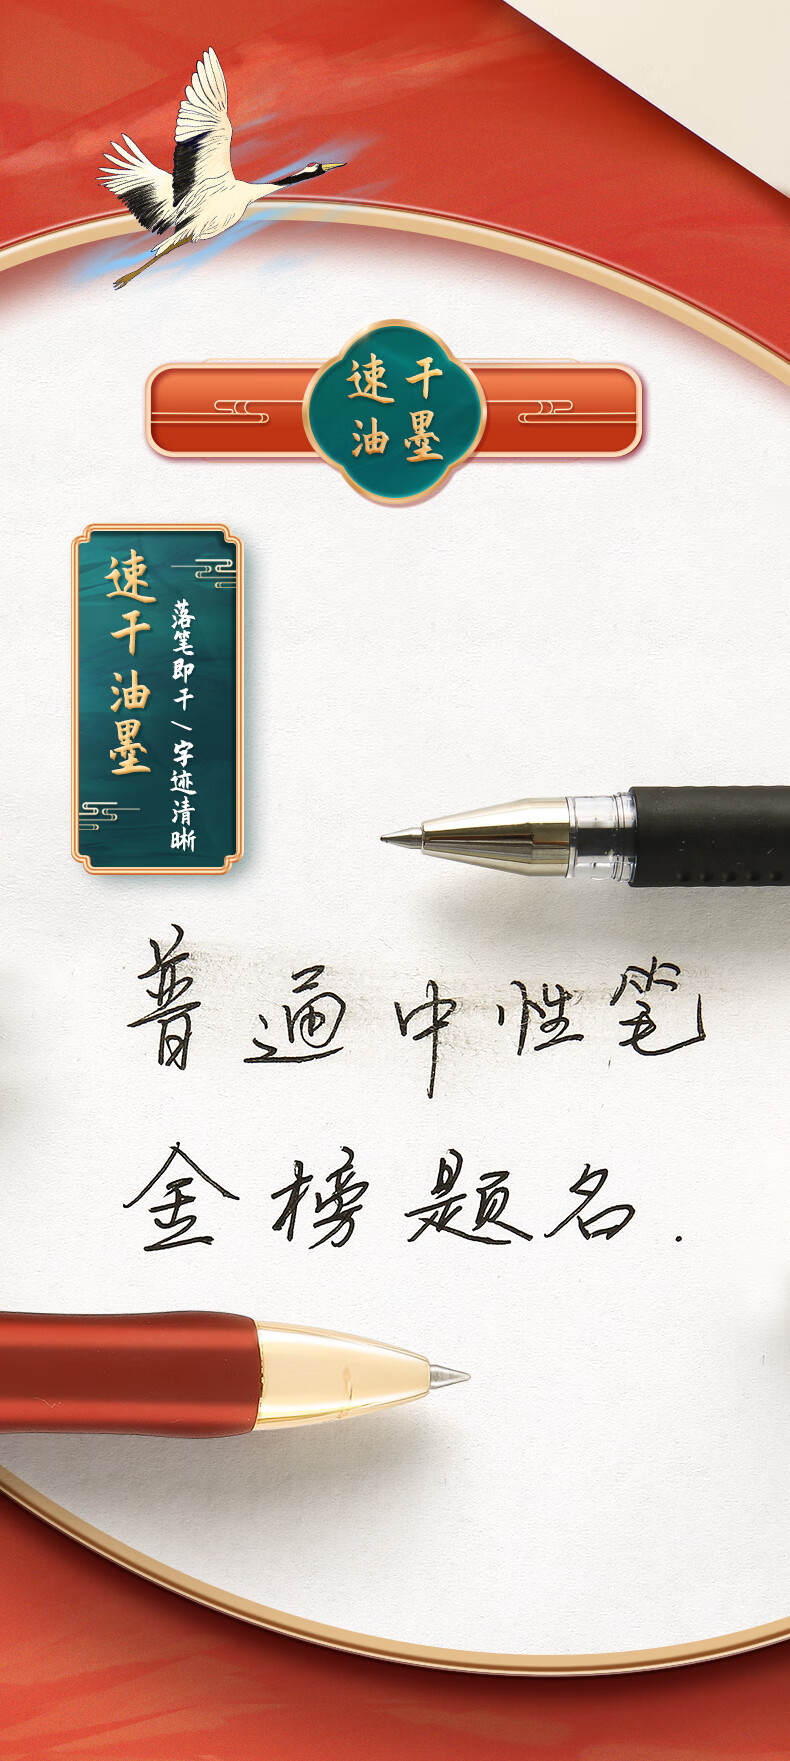 速干
油墨
速干油墨
落笔即干/字迹清晰
普通中性笔
金榜题名.